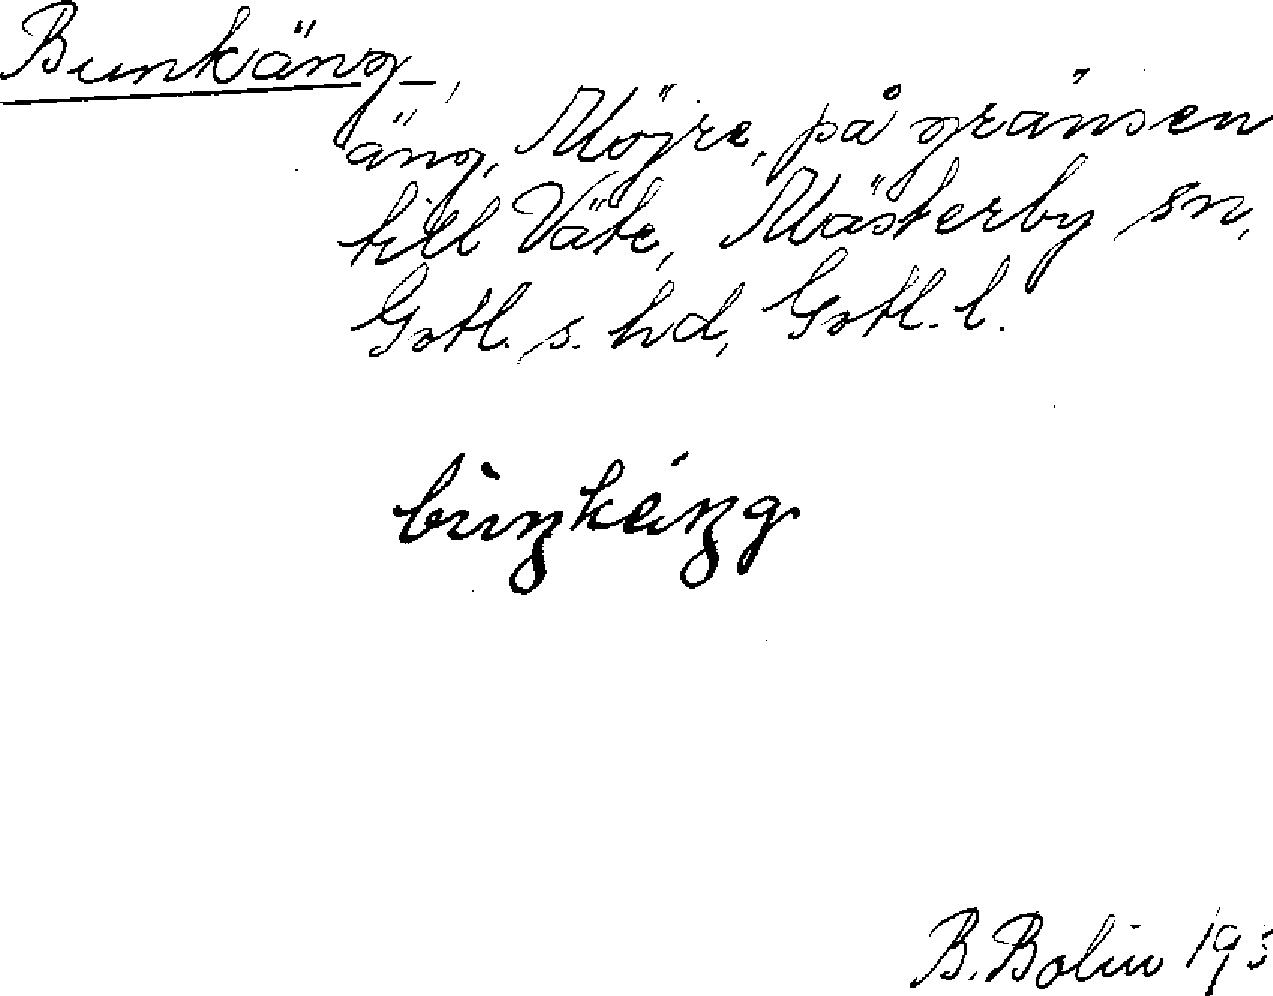 Bunkäng,
äng, Möjre, på gränsen
till Väte, Mästerby sn,
Gotl. s. hd, Gotl. l.
bùŋkáŋg
B. Bolin 193